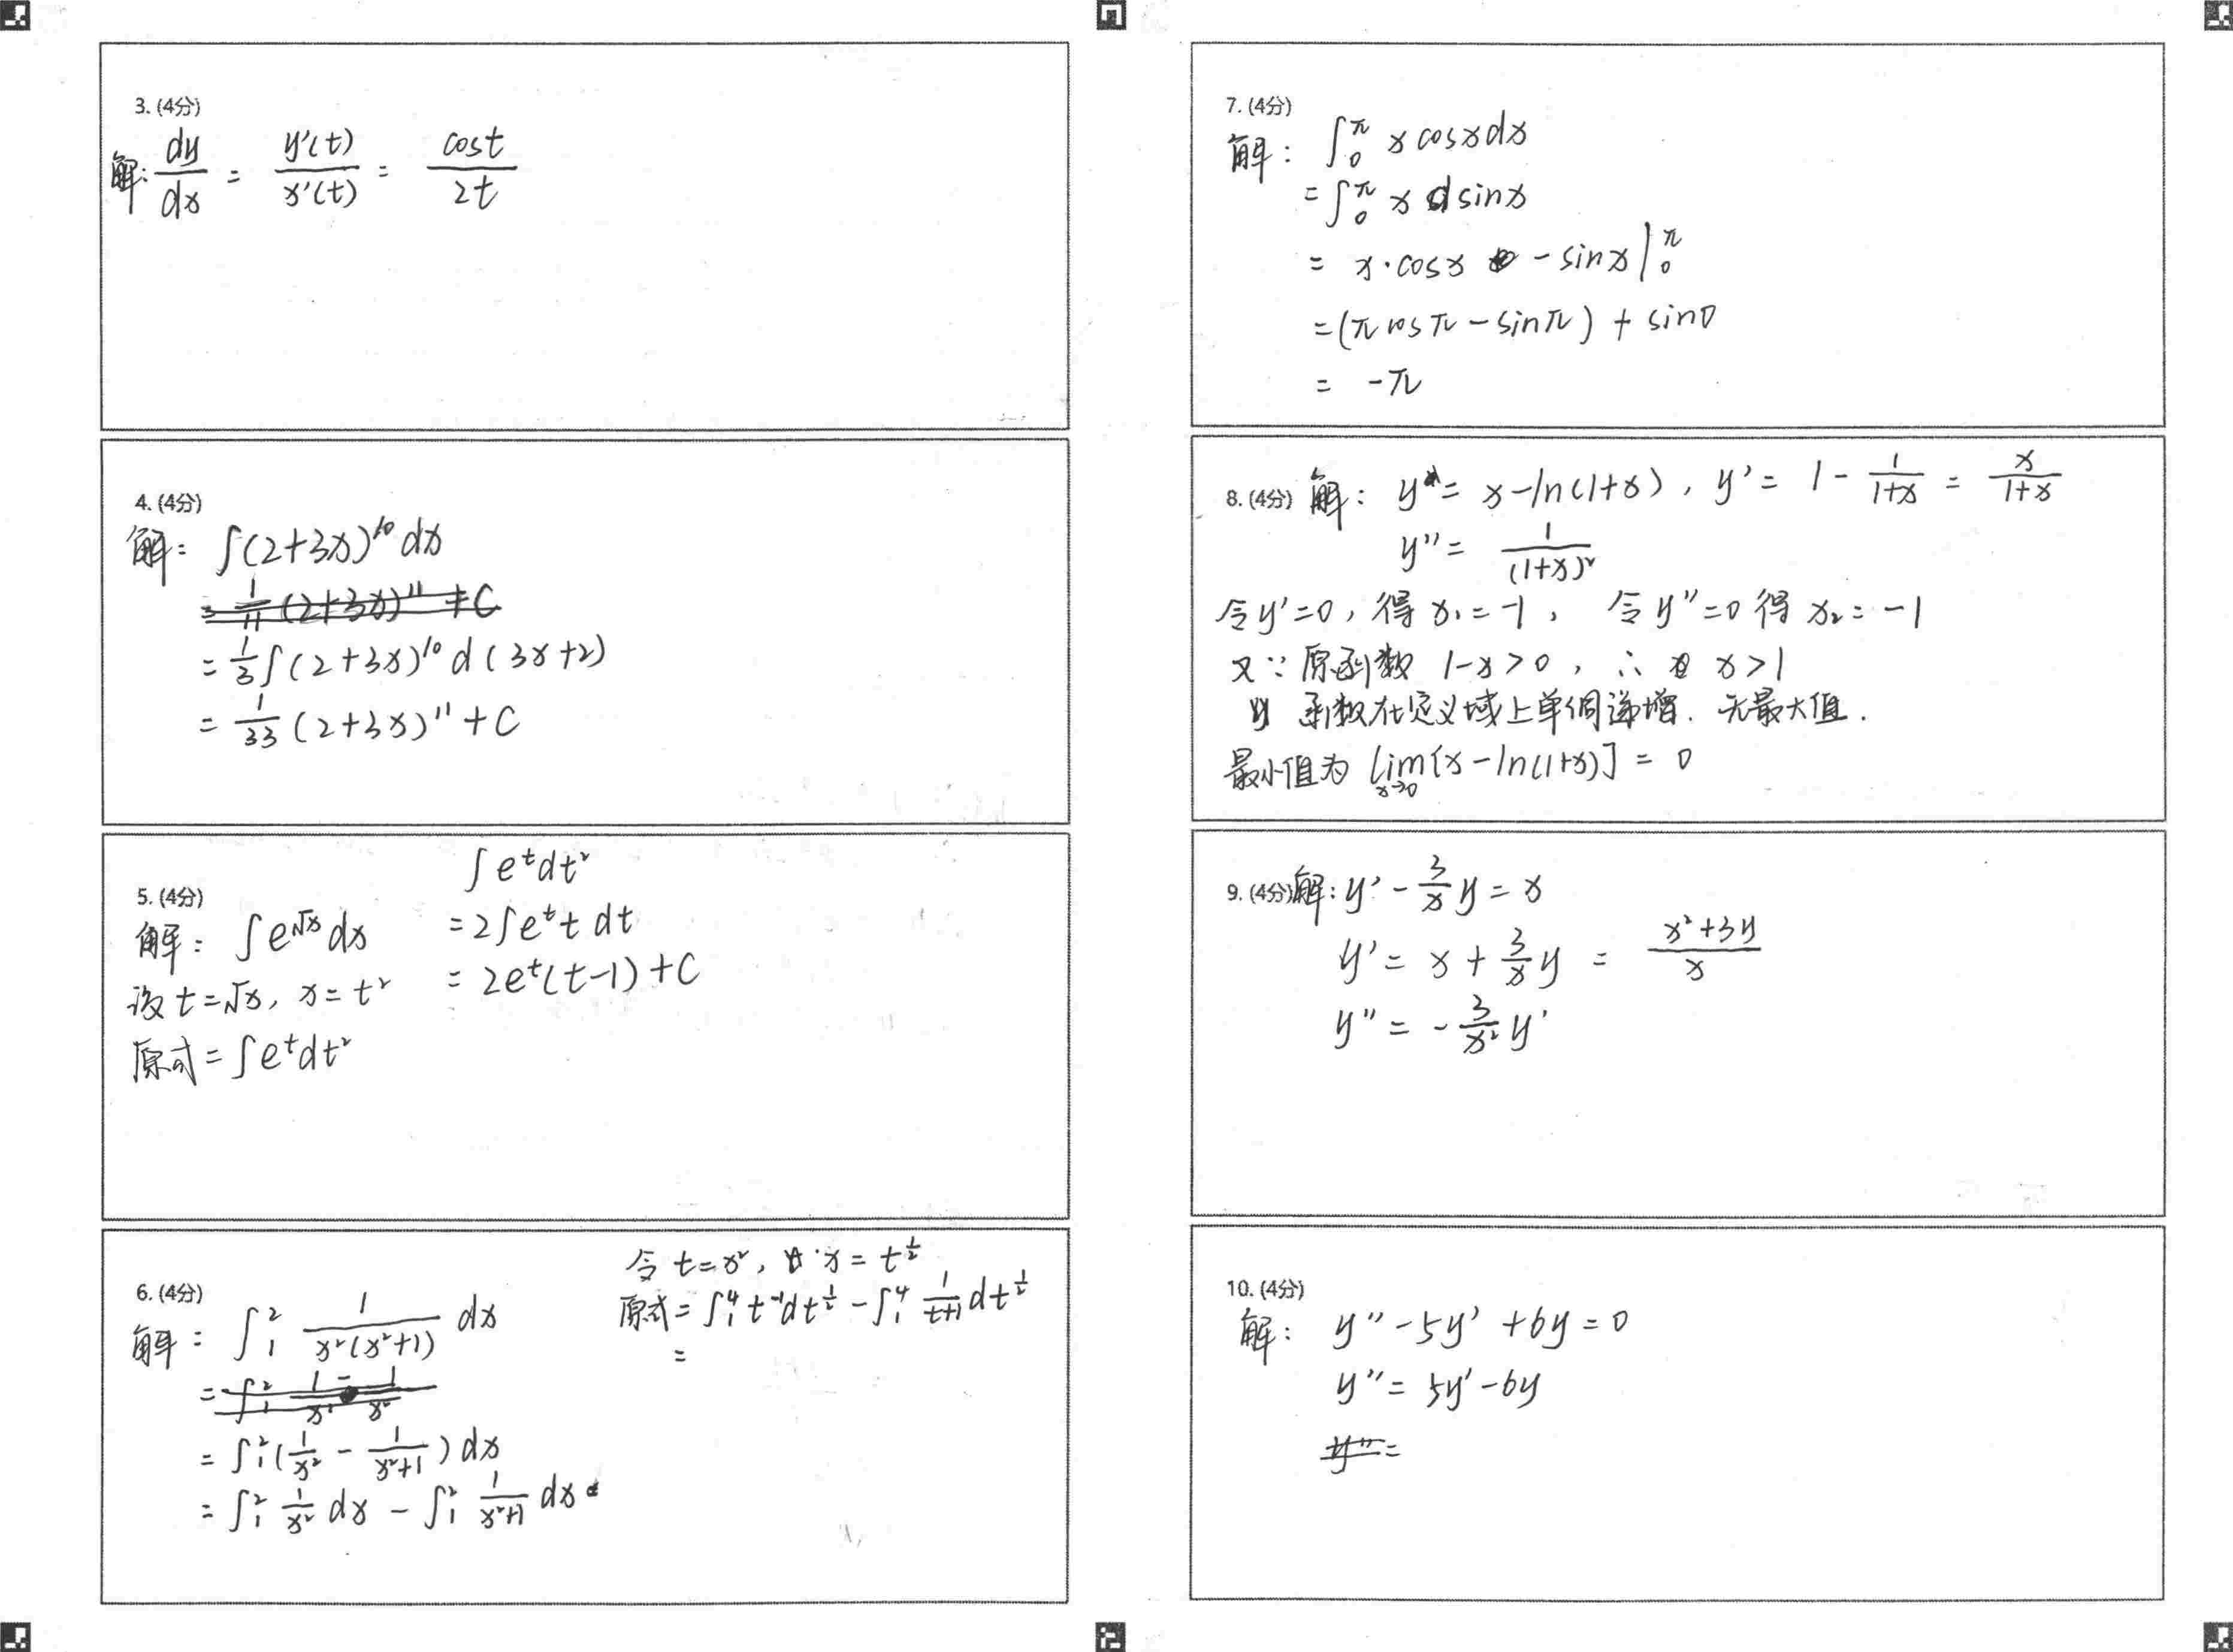 3. (4分)
解: dy/dx = y'(t)/x'(t) = cost/2t
4. (4分)
解: ∫(2+3x)^10 dx
= 1/11 (2+3x)^11 + C
= 1/3 ∫(2+3x)^10 d(3x+2)
= 1/33 (2+3x)^11 + C
5. (4分)
解: ∫e^√x dx
设 t=√x, x=t²
原式=∫e^t dt²
∫e^t dt²
=2∫e^t t dt
= 2e^t(t-1)+C
6. (4分)
解: ∫₁² 1/(x²(x²+1)) dx
= ∫₁² (1/x² - 1/(x²+1)) dx
= ∫₁² 1/x² dx - ∫₁² 1/(x²+1) dx
令 t=x², x=t^(1/2)
原式=∫₁⁴ t^(-1) dt^(1/2) - ∫₁⁴ 1/(t+1) dt^(1/2)
=
7. (4分)
解: ∫₀^π x cosx dx
=∫₀^π x dsinx
= x·cosx - sinx |₀^π
=(π cosπ - sinπ) + sin0
= -π
8. (4分) 解: y = x-ln(1+x), y' = 1 - 1/(1+x) = x/(1+x)
y'' = 1/(1+x)²
令y'=0, 得x₁=-1, 令y''=0得x₂=-1
又∵原函数 1-x>0, ∴ x>1
函数在定义域上单调递增. 无最大值.
最小值为 lim x→0 [x-ln(1+x)] = 0
9. (4分) 解: y' - 3/x y = x
y' = x + 3/x y = (x²+3y)/x
y'' = - 3/x² y'
10. (4分)
解: y''-5y'+6y=0
y''=5y'-6y
y''=